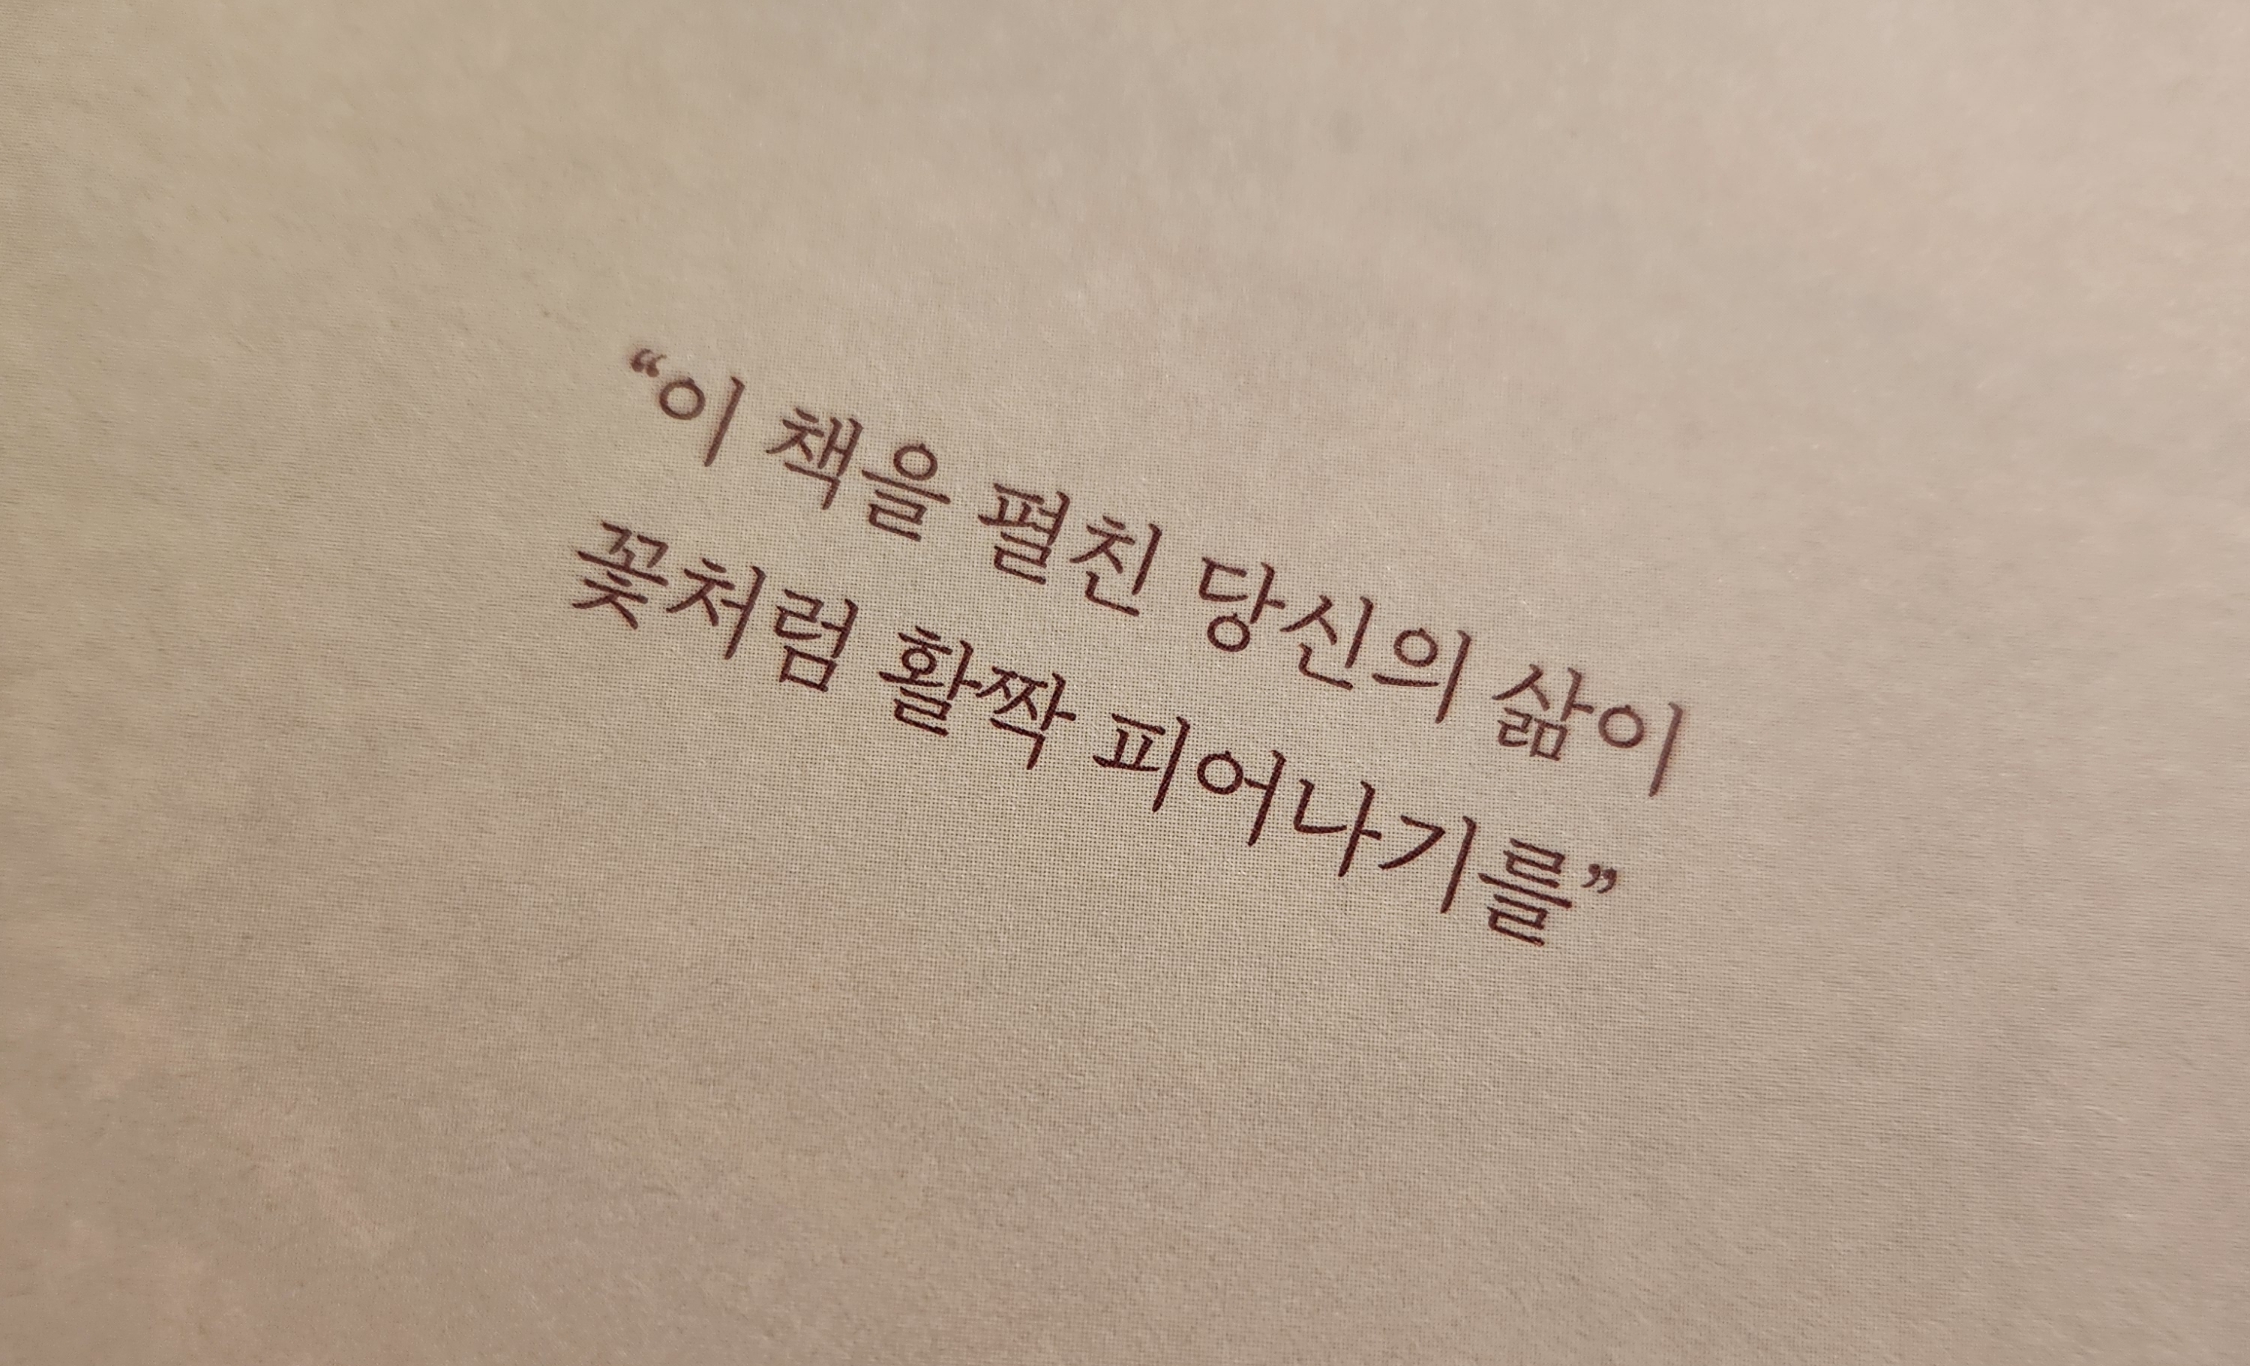 “이 책을 펼친 당신의 삶이
꽃처럼 활짝 피어나기를”